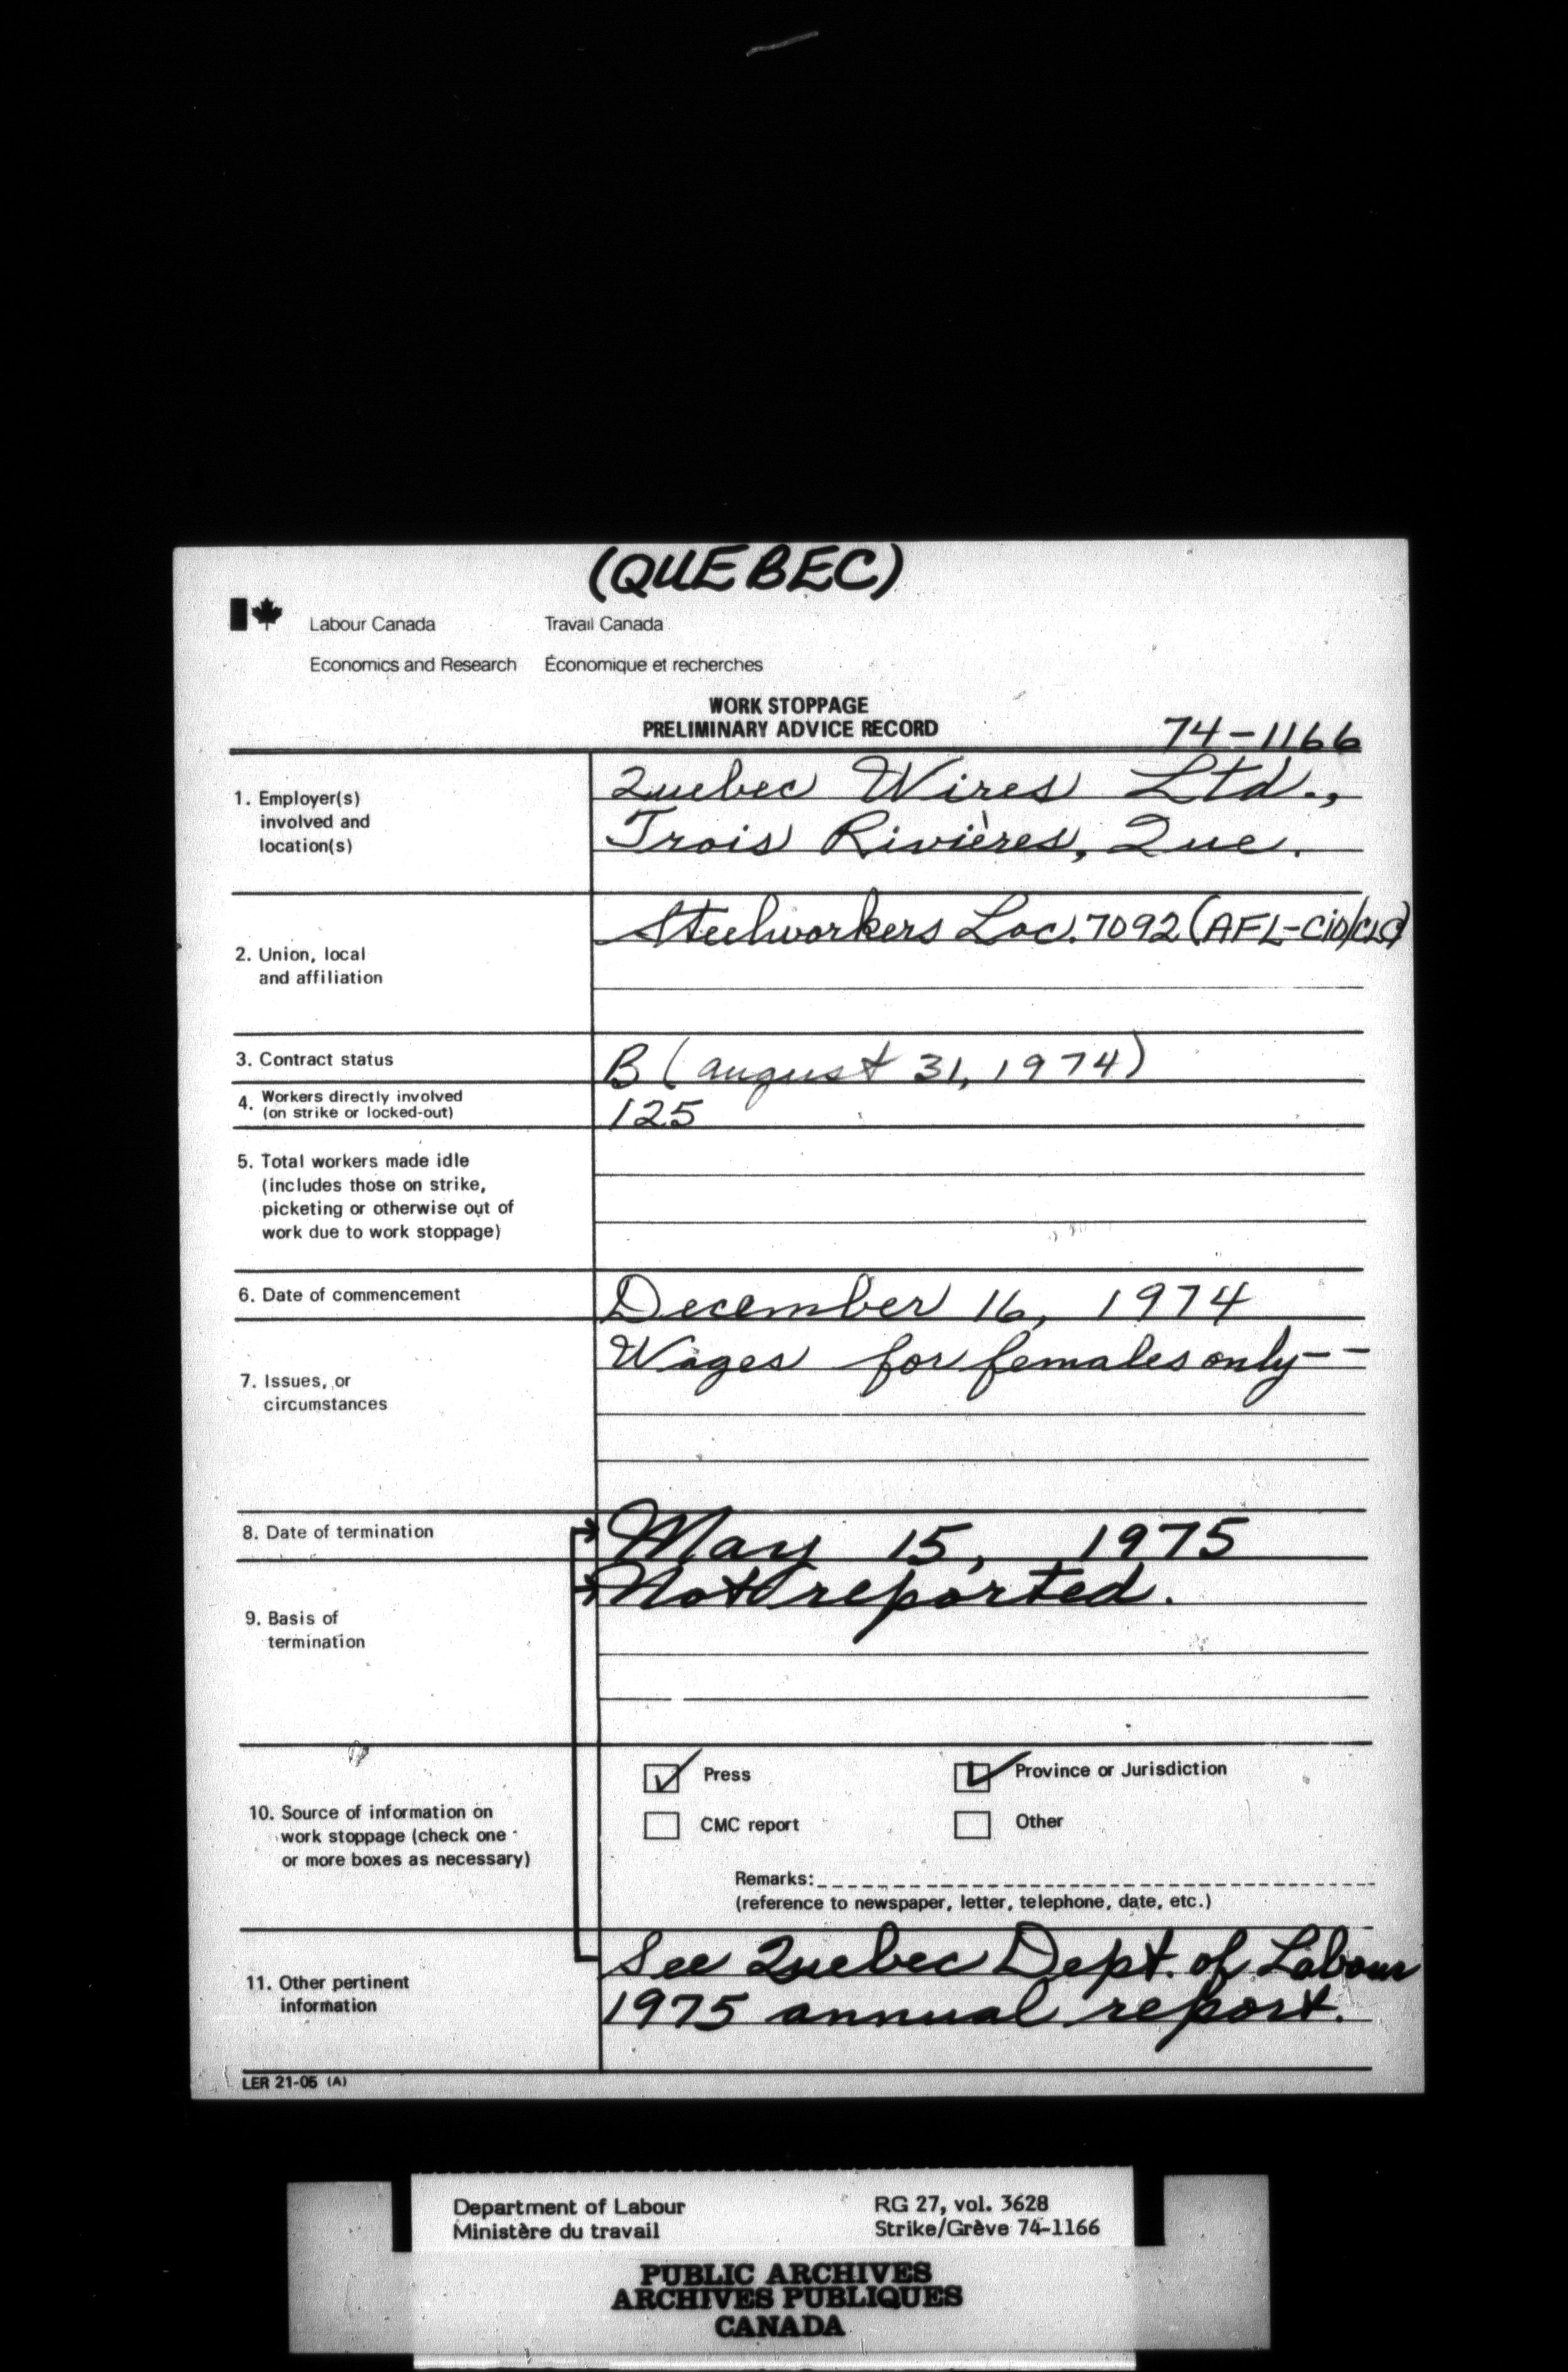 (QUEBEC)
Labour Canada Travail Canada
Economics and Research Économique et recherches
WORK STOPPAGE
PRELIMINARY ADVICE RECORD
74-1166
1. Employer(s)
involved and
location(s)
Quebec Wires Ltd.,
Trois Rivières, Que.
2. Union, local
and affiliation
Steelworkers Loc. 7092 (AFL-CIO/CLC)
3. Contract status
B (august 31, 1974)
4. Workers directly involved
(on strike or locked-out)
125
5. Total workers made idle
(includes those on strike,
picketing or otherwise out of
work due to work stoppage)
6. Date of commencement
December 16, 1974
7. Issues, or
circumstances
Wages for females only--
8. Date of termination
May 15, 1975
9. Basis of
termination
Not reported.
10. Source of information on
work stoppage (check one
or more boxes as necessary)
Press Province or Jurisdiction
CMC report Other
Remarks:
(reference to newspaper, letter, telephone, date, etc.)
11. Other pertinent
information
See Quebec Dept. of Labour
1975 annual report.
LER 21-05 (A)
Department of Labour RG 27, vol. 3628
Ministère du travail Strike/Grève 74-1166
PUBLIC ARCHIVES
ARCHIVES PUBLIQUES
CANADA